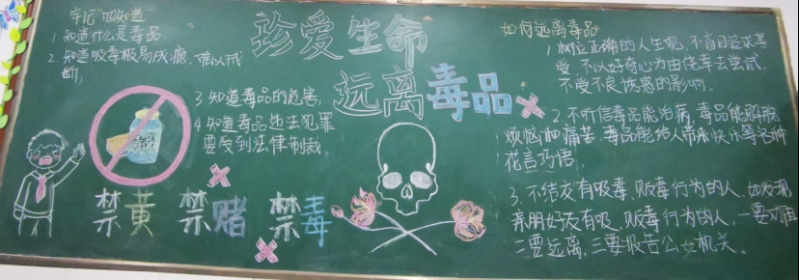 牢记“四知道”
1 知道什么是毒品
2. 知道吸毒极易成瘾, 难以戒
断,
3 知道毒品的危害,
4 知道毒品违法犯罪
要受到法律制裁,
禁黄 禁赌 禁毒
珍爱生命
远离毒品
如何远离毒品
1 树立正确的人生观, 不盲目追求享
受, 不以好奇心为由侥幸去尝试,
不受不良诱惑的影响.
2. 不听信毒品能治病, 毒品能解脱
烦恼和痛苦, 毒品能给人带来快乐等各种
花言巧语
3. 不结友有吸毒、贩毒行为的人, 如发现
亲朋好友有吸、贩毒行为的人, 一要劝阻
二要远离, 三要报告公安机关.